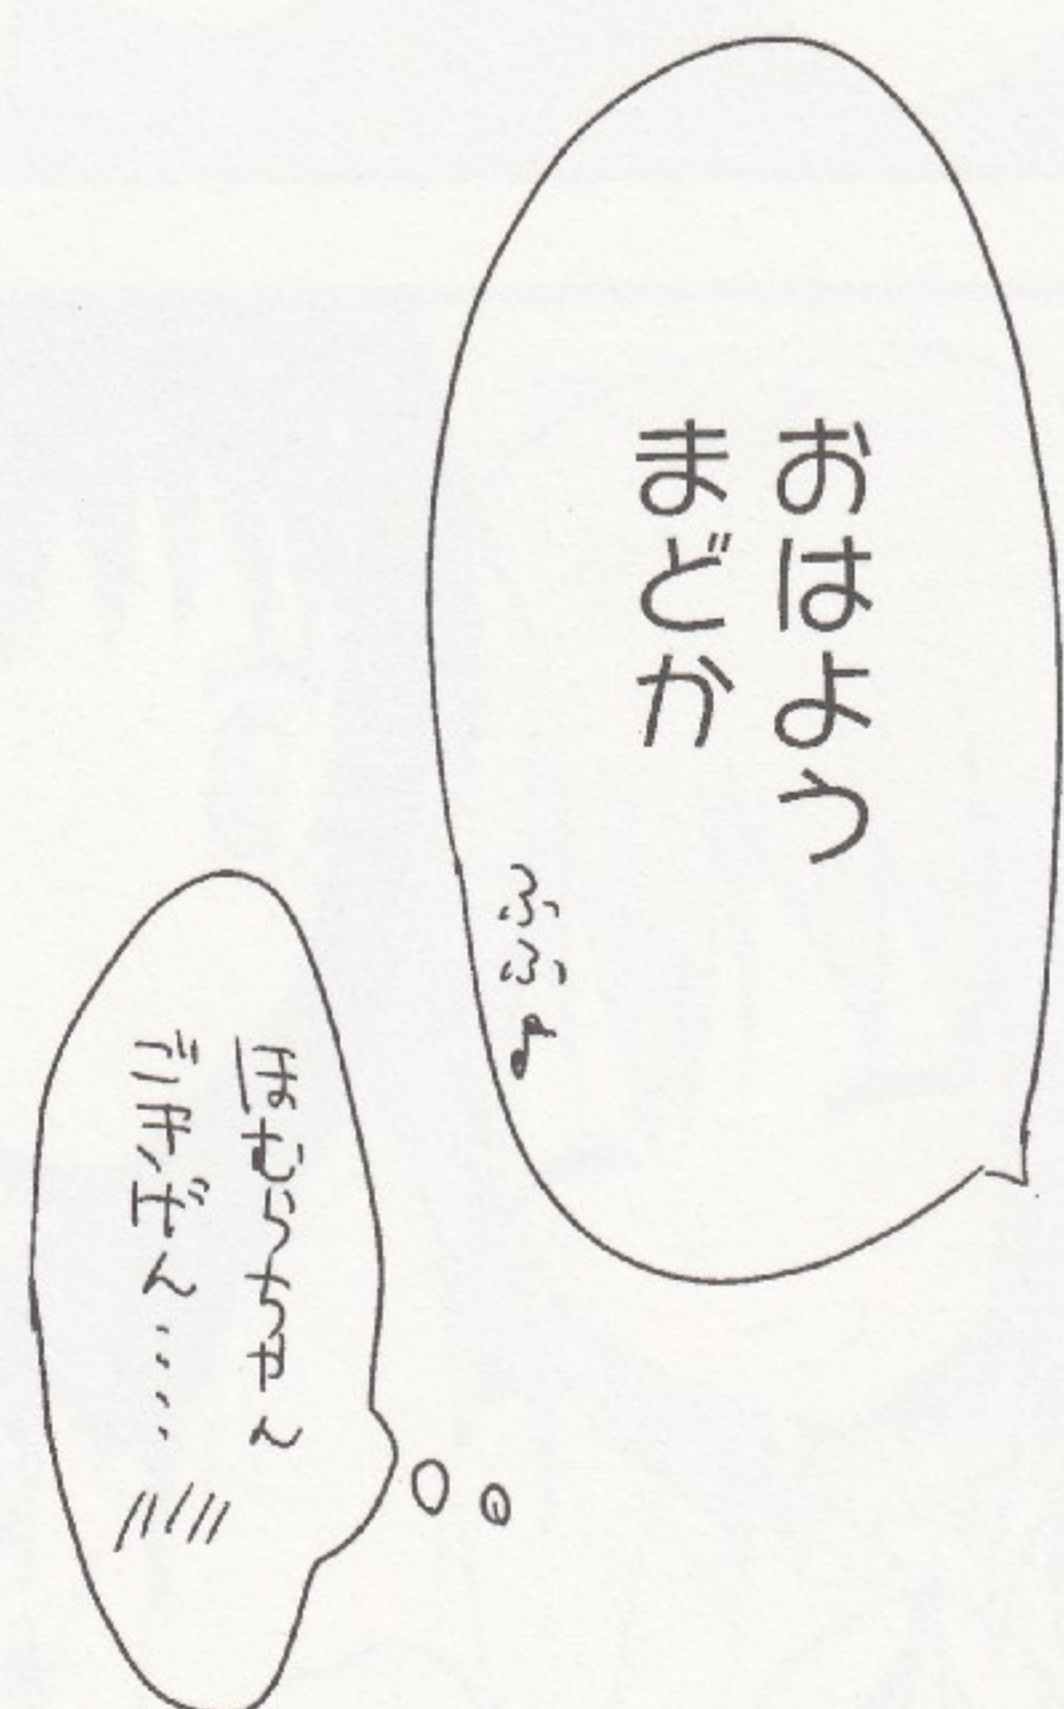 おはよう
まどか
ふふ♪
ほむらちゃん
ごきげん……